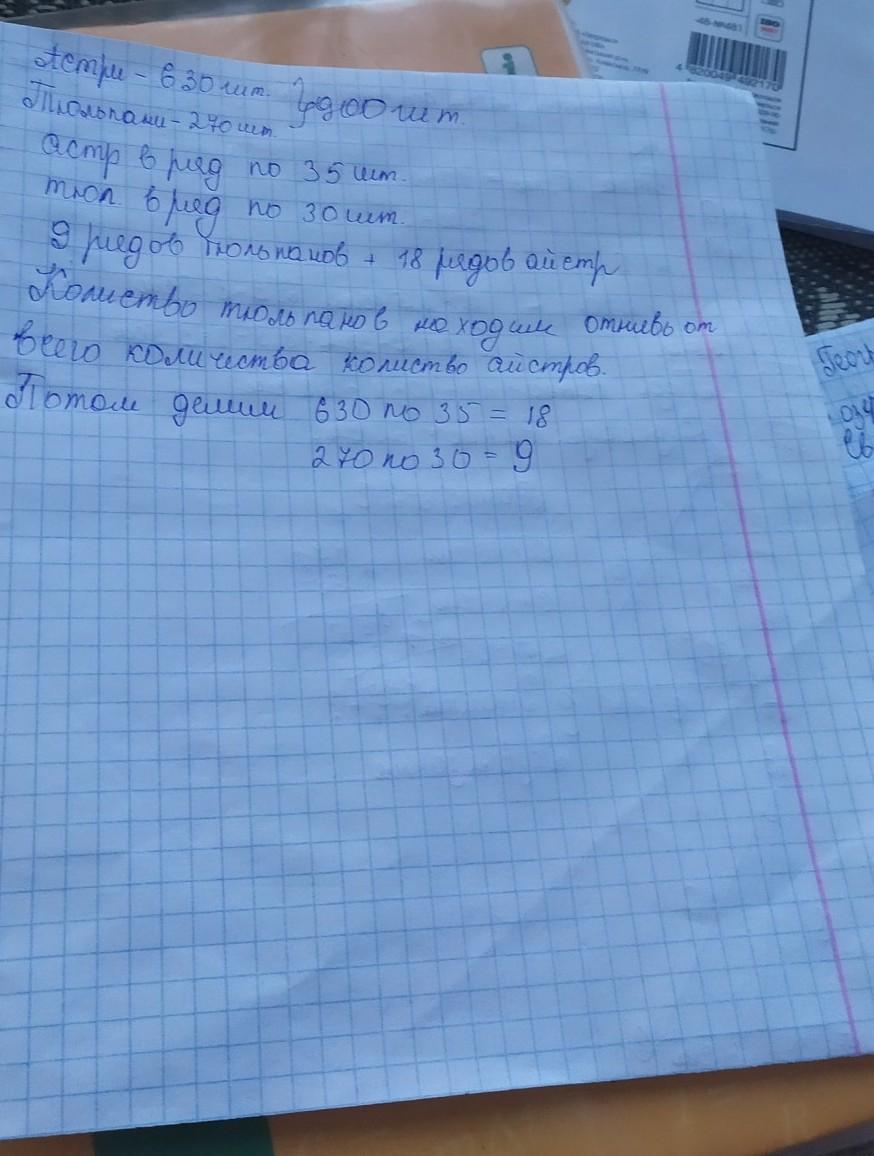 Астри - 630 шт. } 900 шт.
Тюльпани - 270 шт.
астр в ряд по 35 шт.
тюл в ряд по 30 шт.
9 рядов тюльпанов + 18 рядов айстр
Колиство тюльпанов находим отнивь от
всего количества колиство айстров.
Потом делим 630 по 35 = 18
270 по 30 = 9
48-NR481
ISO
4 820049 492170
i